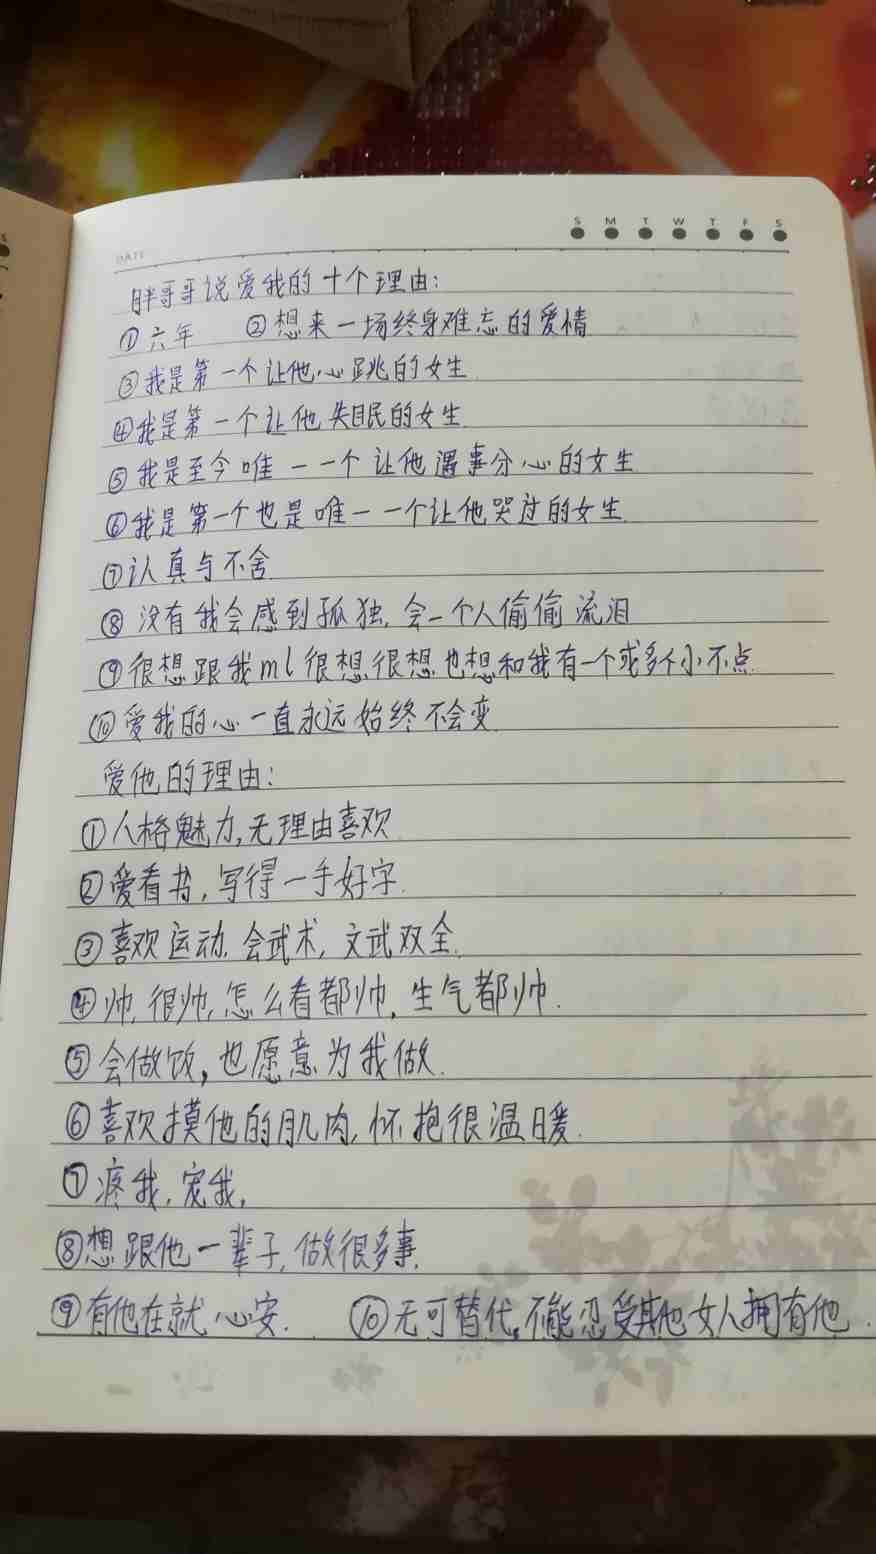 DATE
S M T W T F S
胖哥哥说爱我的十个理由:
①六年 ②想来一场终身难忘的爱情
③我是第一个让他心跳的女生.
④我是第一个让他失眠的女生.
⑤我是至今唯一一个让他遇事分心的女生
⑥我是第一个也是唯一一个让他哭过的女生.
⑦认真与不舍.
⑧没有我会感到孤独,会一个人偷偷流泪
⑨很想跟我ml很想,很想.也想和我有一个或多个小不点.
⑩爱我的心一直永远始终不会变.
爱他的理由:
①人格魅力,无理由喜欢.
②爱看书,写得一手好字.
③喜欢运动,会武术,文武双全.
④帅,很帅,怎么看都帅,生气都帅.
⑤会做饭,也愿意为我做.
⑥喜欢摸他的肌肉,怀抱很温暖.
⑦疼我,宠我,
⑧想跟他一辈子,做很多事.
⑨有他在就心安. ⑩无可替代,不能忍受其他女人拥有他.